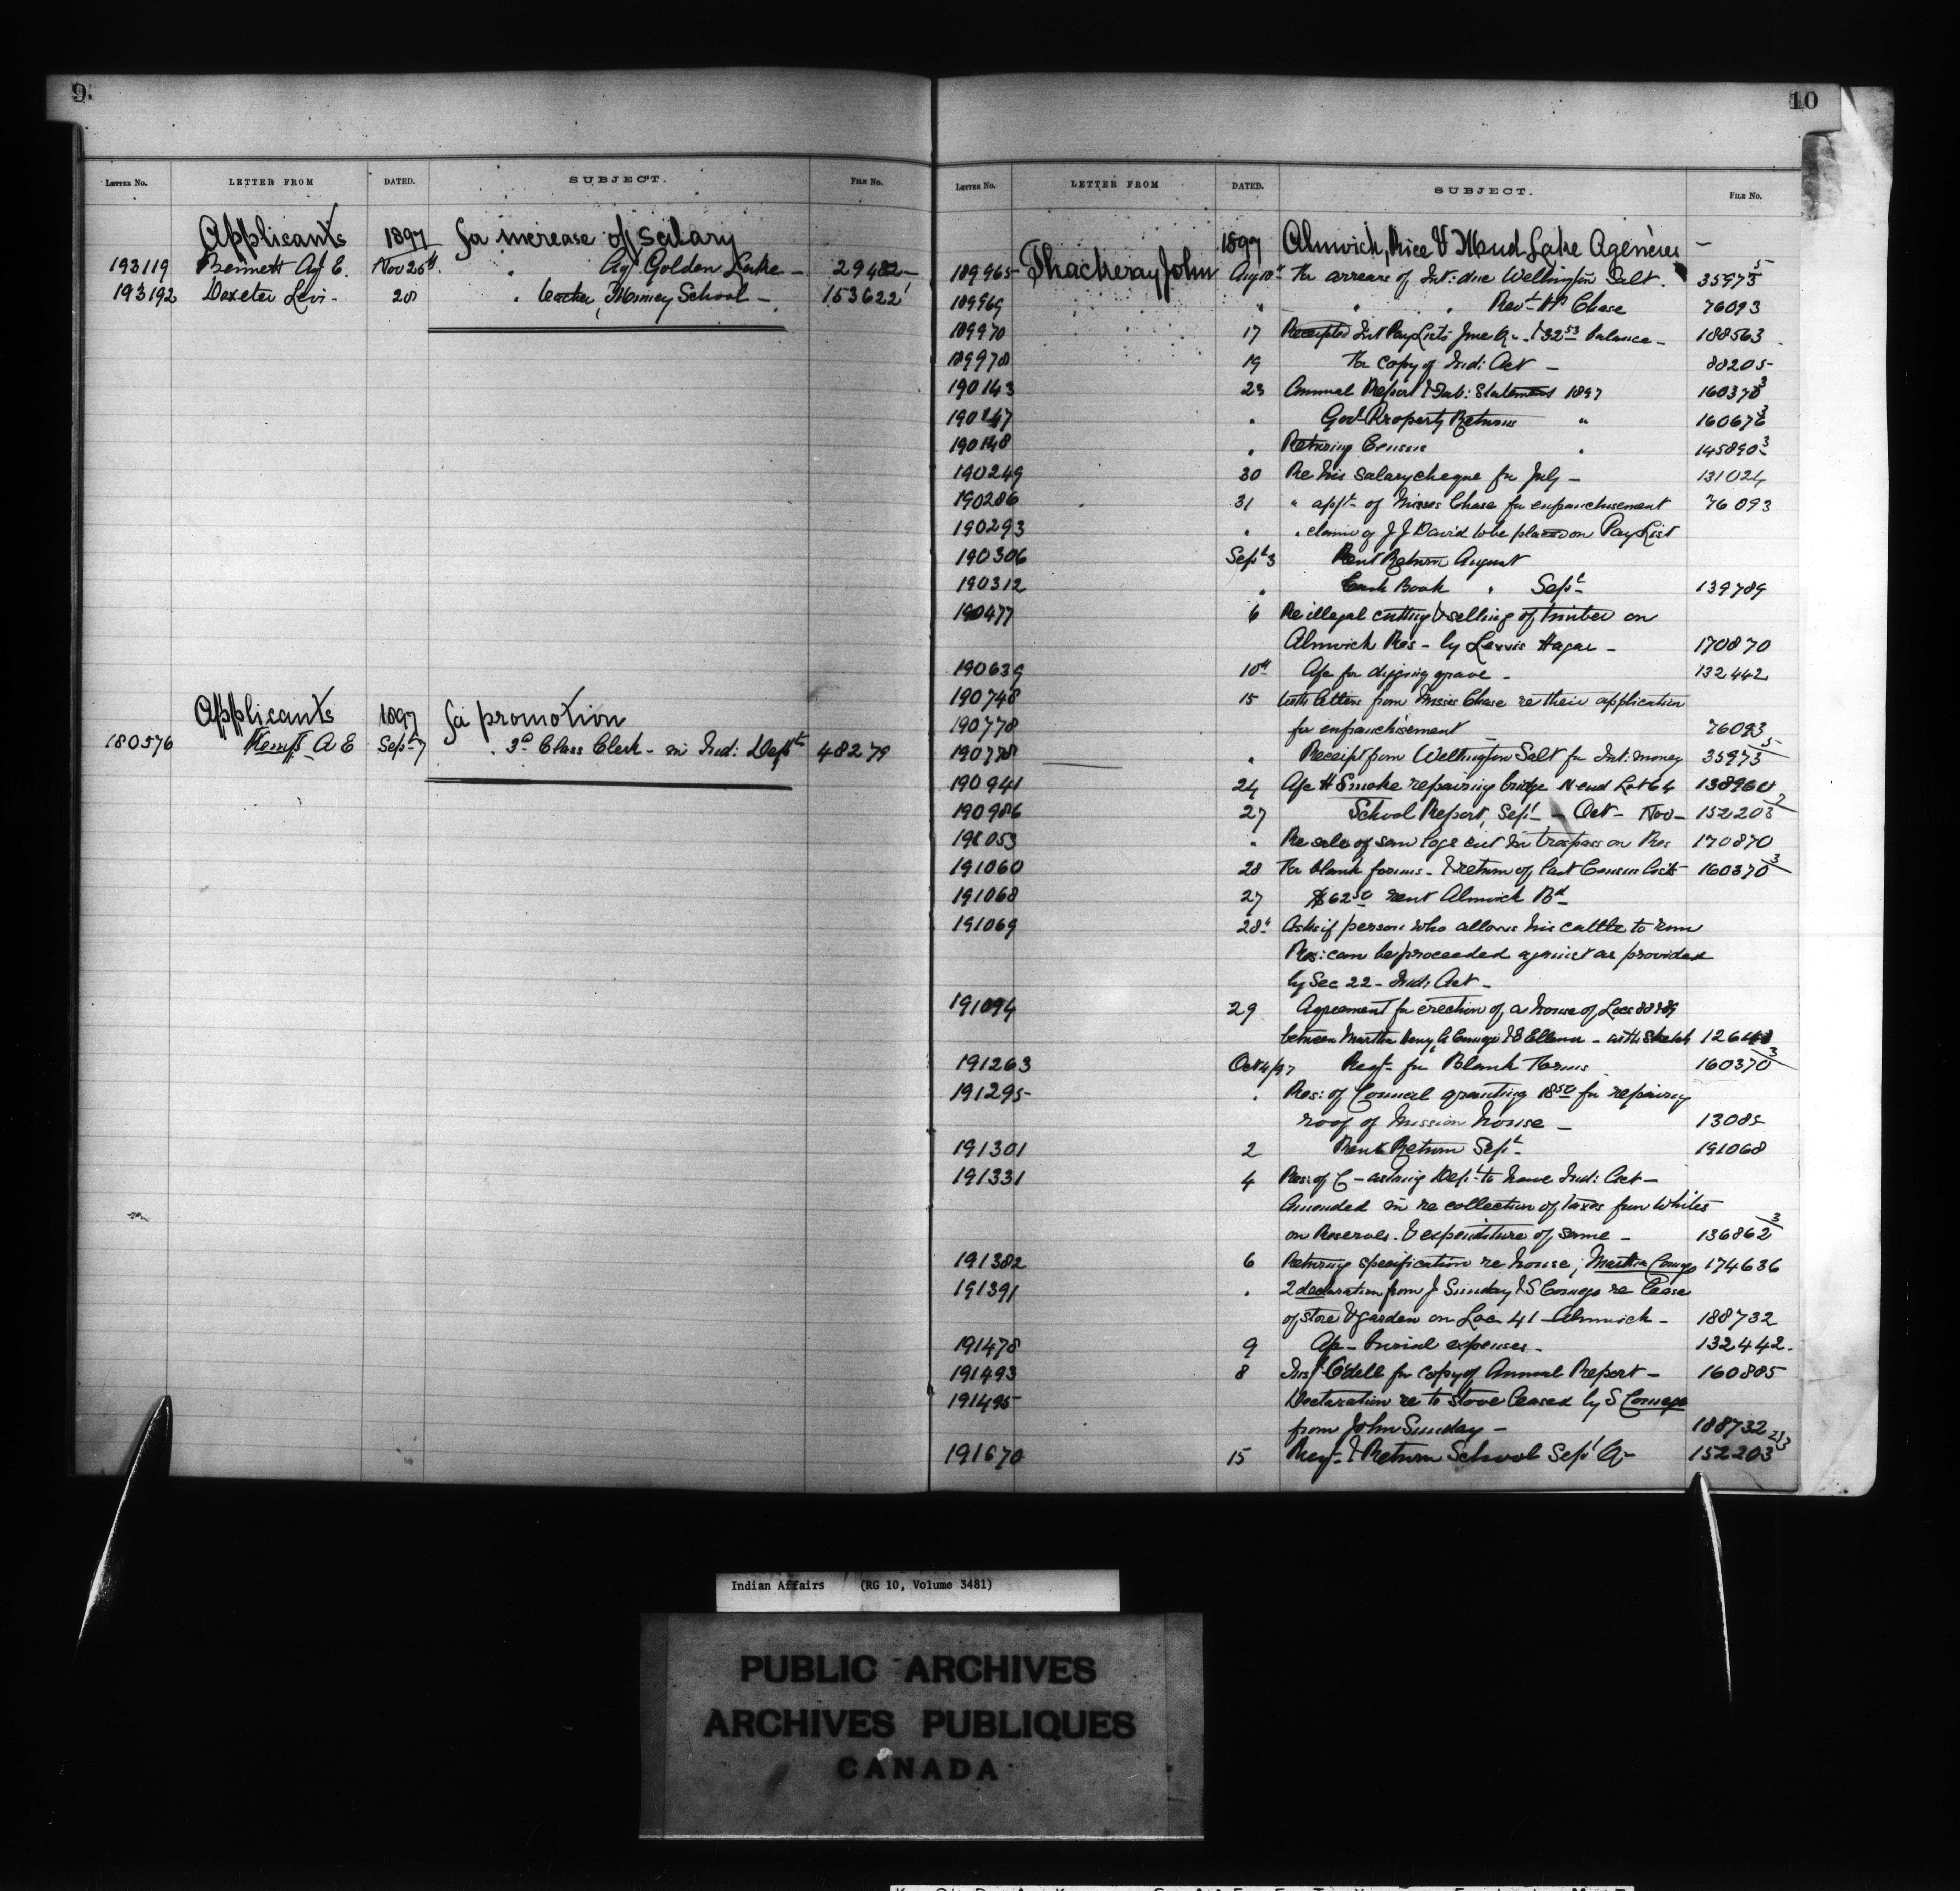 9.
LETTER No. LETTER FROM DATED. SUBJECT. FILE No.
Applicants 1897 for increase of salary
193119 Bennett Agt E. Nov 26th " Agt Golden Lake - 29482 -
193192 Doxeter Levi - 20 " teacher, Muncey School - 153622 1
Applicants 1897 for promotion
180576 Kemp A E Sept 7 " 3d Class Clerk - in Ind: Dept 48279
10
LETTER No. LETTER FROM DATED. SUBJECT. FILE No.
1897 Alnwick, Rice & Mud Lake Agencies -
189965 Thackeray John Aug 18th For arrears of Int: due Wellington Salt. 35973 5
189969 " " " Revt H P Chase 76093
189970 17 Receipted Int Pay Lists June Qr - & 32 53 balance - 188563
189978 19 For copy of Ind: Act - 88205
190143 23 Annual Report & Tab: Statement 1897 160370 3
190147 " Govt Property Returns " 160676 3
190148 " Returning Census " 145890 3
190249 30 Re his salary cheque for July - 131024
190286 31 " appn of Misses Chase for enfranchisement 76093
190293 " " claim of J J David to be placed on Pay List
190306 Sept 3 Rent Return August
190312 " Cash Book " Sept 139789
190477 6 Re illegal cutting & selling of timber on
Alnwick Res - by Lewis Hagar - 170870
190639 10th A/c for digging grave - 132442
190748 15 With letters from Misses Chase re their application
190778 for enfranchisement 76093
190778 " Receipt from Wellington Salt for Int: money 35973 5
190941 24 A/c H Smoke repairing bridge N end Lot 64 138960
190986 27 School Report, Sept - Oct - Nov - 152203 2
191053 " Re sale of saw logs cut in trespass on Res 170870
191060 28 For blank forms - & return of last Census Lists 160370 3
191068 27 $62 50 rent Alnwick Bd -
191069 28th Asks if person who allows his cattle to run
Res: can be proceeded against as provided
by Sec 22 - Ind: Act -
191094 29 Agreement for erection of a house of Locs 88 & 89
between Martha Comego & Ellan - with sketch
191263 Oct 4/97 Reqn for Blank Forms 160370 3
191295 " Res: of Council granting 18 50 for repairing
roof of Mission house - 13085
191301 2 Rent Return Sept - 191068
191331 4 Res: of C - asking Dept to have Ind: Act -
Amended in re collection of taxes from Whites
on Reserves - & expenditure of same - 136862 3
191382 6 Returning specification re house, Martha Comego 174636
191391 " 2 declaration from J Sunday & S Comego re lease
of store & garden on Loc 41 Alnwick - 188732
191478 9 A/c - burial expenses - 132442 -
191493 8 Insp Odell for copy of Annual Report - 160885
191495 Declaration re to Store leased by S Comego
from John Sunday - 188732
191670 15 Reqn & Return School Sept Qr 152203 2/3
Indian Affairs (RG 10, Volume 3481)
PUBLIC ARCHIVES
ARCHIVES PUBLIQUES
CANADA